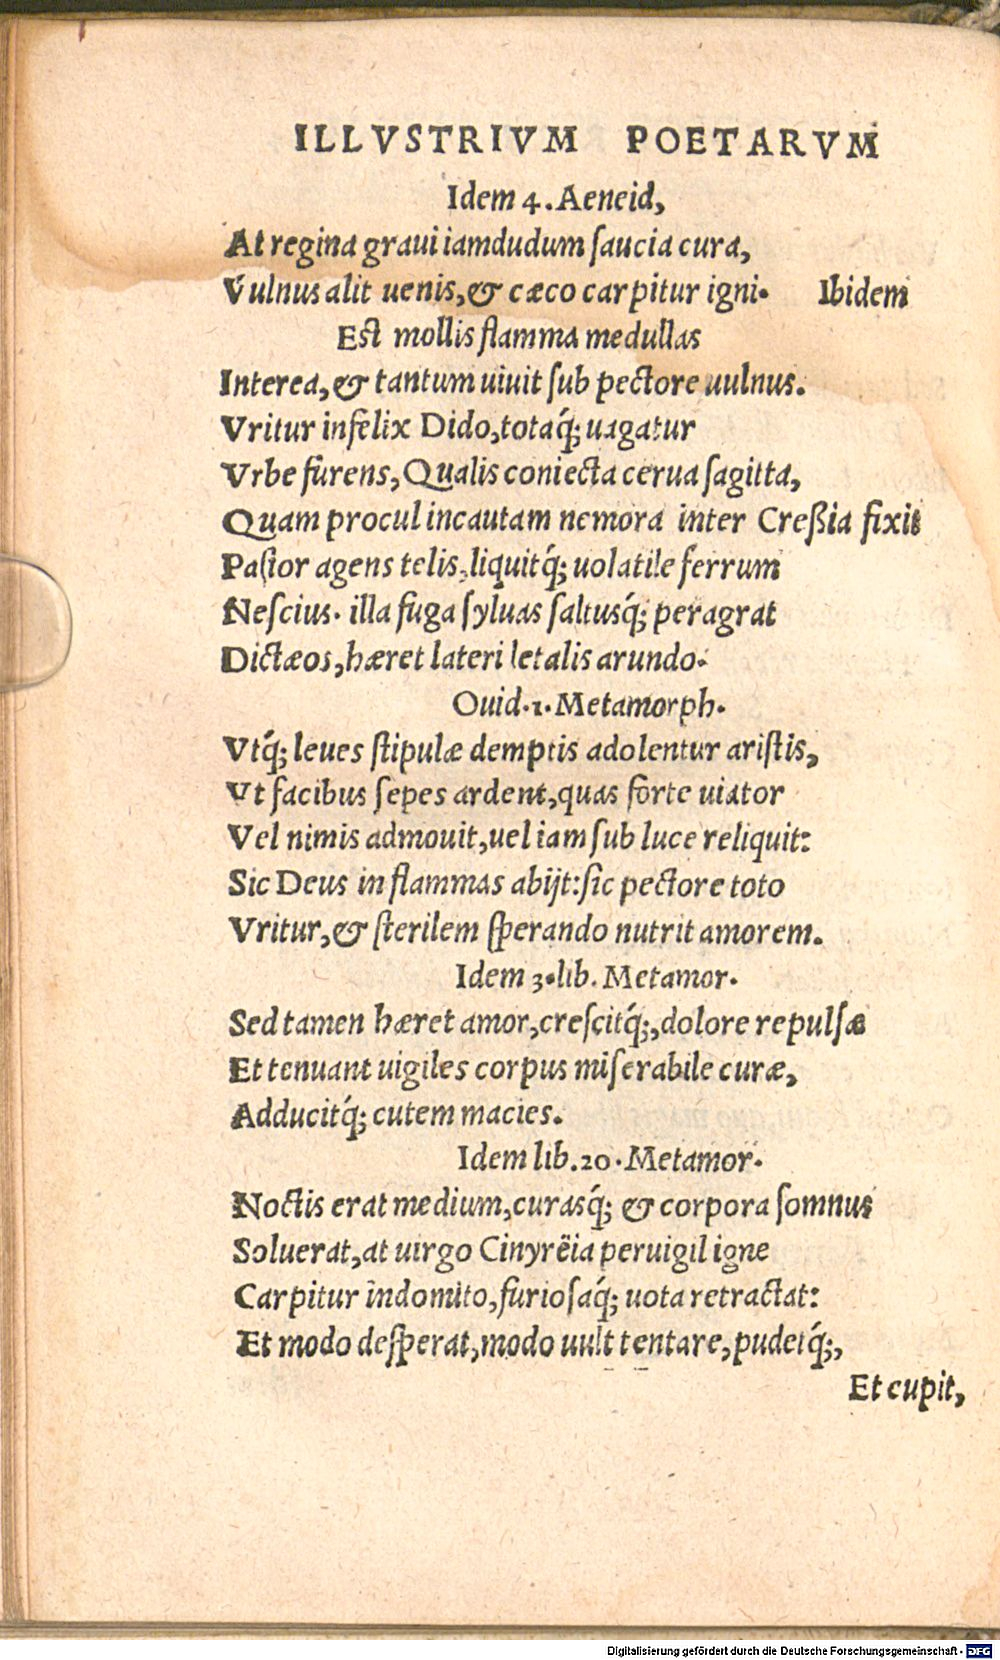 ILLVSTRIVM POETARVM
Idem 4. Aeneid,
At regina graui iamdudum ſaucia cura,
Vulnus alit uenis, & cæco carpitur igni. Ibidem
Eſt mollis flamma medullas
Interea, & tantum uiuit ſub pectore uulnus.
Vritur infelix Dido, totaq́; uagatur
Vrbe furens, Qualis coniecta cerua ſagitta,
Quam procul incautam nemora inter Creßia fixit
Paſtor agens telis, liquitq́; uolatile ferrum
Neſcius. illa fuga ſyluas ſaltusq́; peragrat
Dictæos, hæret lateri letalis arundo.
Ouid. 1. Metamorph.
Vtq́; leues ſtipulæ demptis adolentur ariſtis,
Vt facibus ſepes ardent, quas forte uiator
Vel nimis admouit, uel iam ſub luce reliquit:
Sic Deus in flammas abijt: ſic pectore toto
Vritur, & ſterilem ſperando nutrit amorem.
Idem 3. lib. Metamor.
Sed tamen hæret amor, creſcitq́;, dolore repulſæ
Et tenuant uigiles corpus miſerabile curæ,
Adducitq́; cutem macies.
Idem lib. 20. Metamor.
Noctis erat medium, curasq́; & corpora ſomnus
Soluerat, at uirgo Cinyrëia peruigil igne
Carpitur indomito, furioſaq́; uota retractat:
Et modo deſperat, modo uult tentare, pudetq́;,
Et cupit,
Digitalisierung gefördert durch die Deutsche Forschungsgemeinschaft - DFG